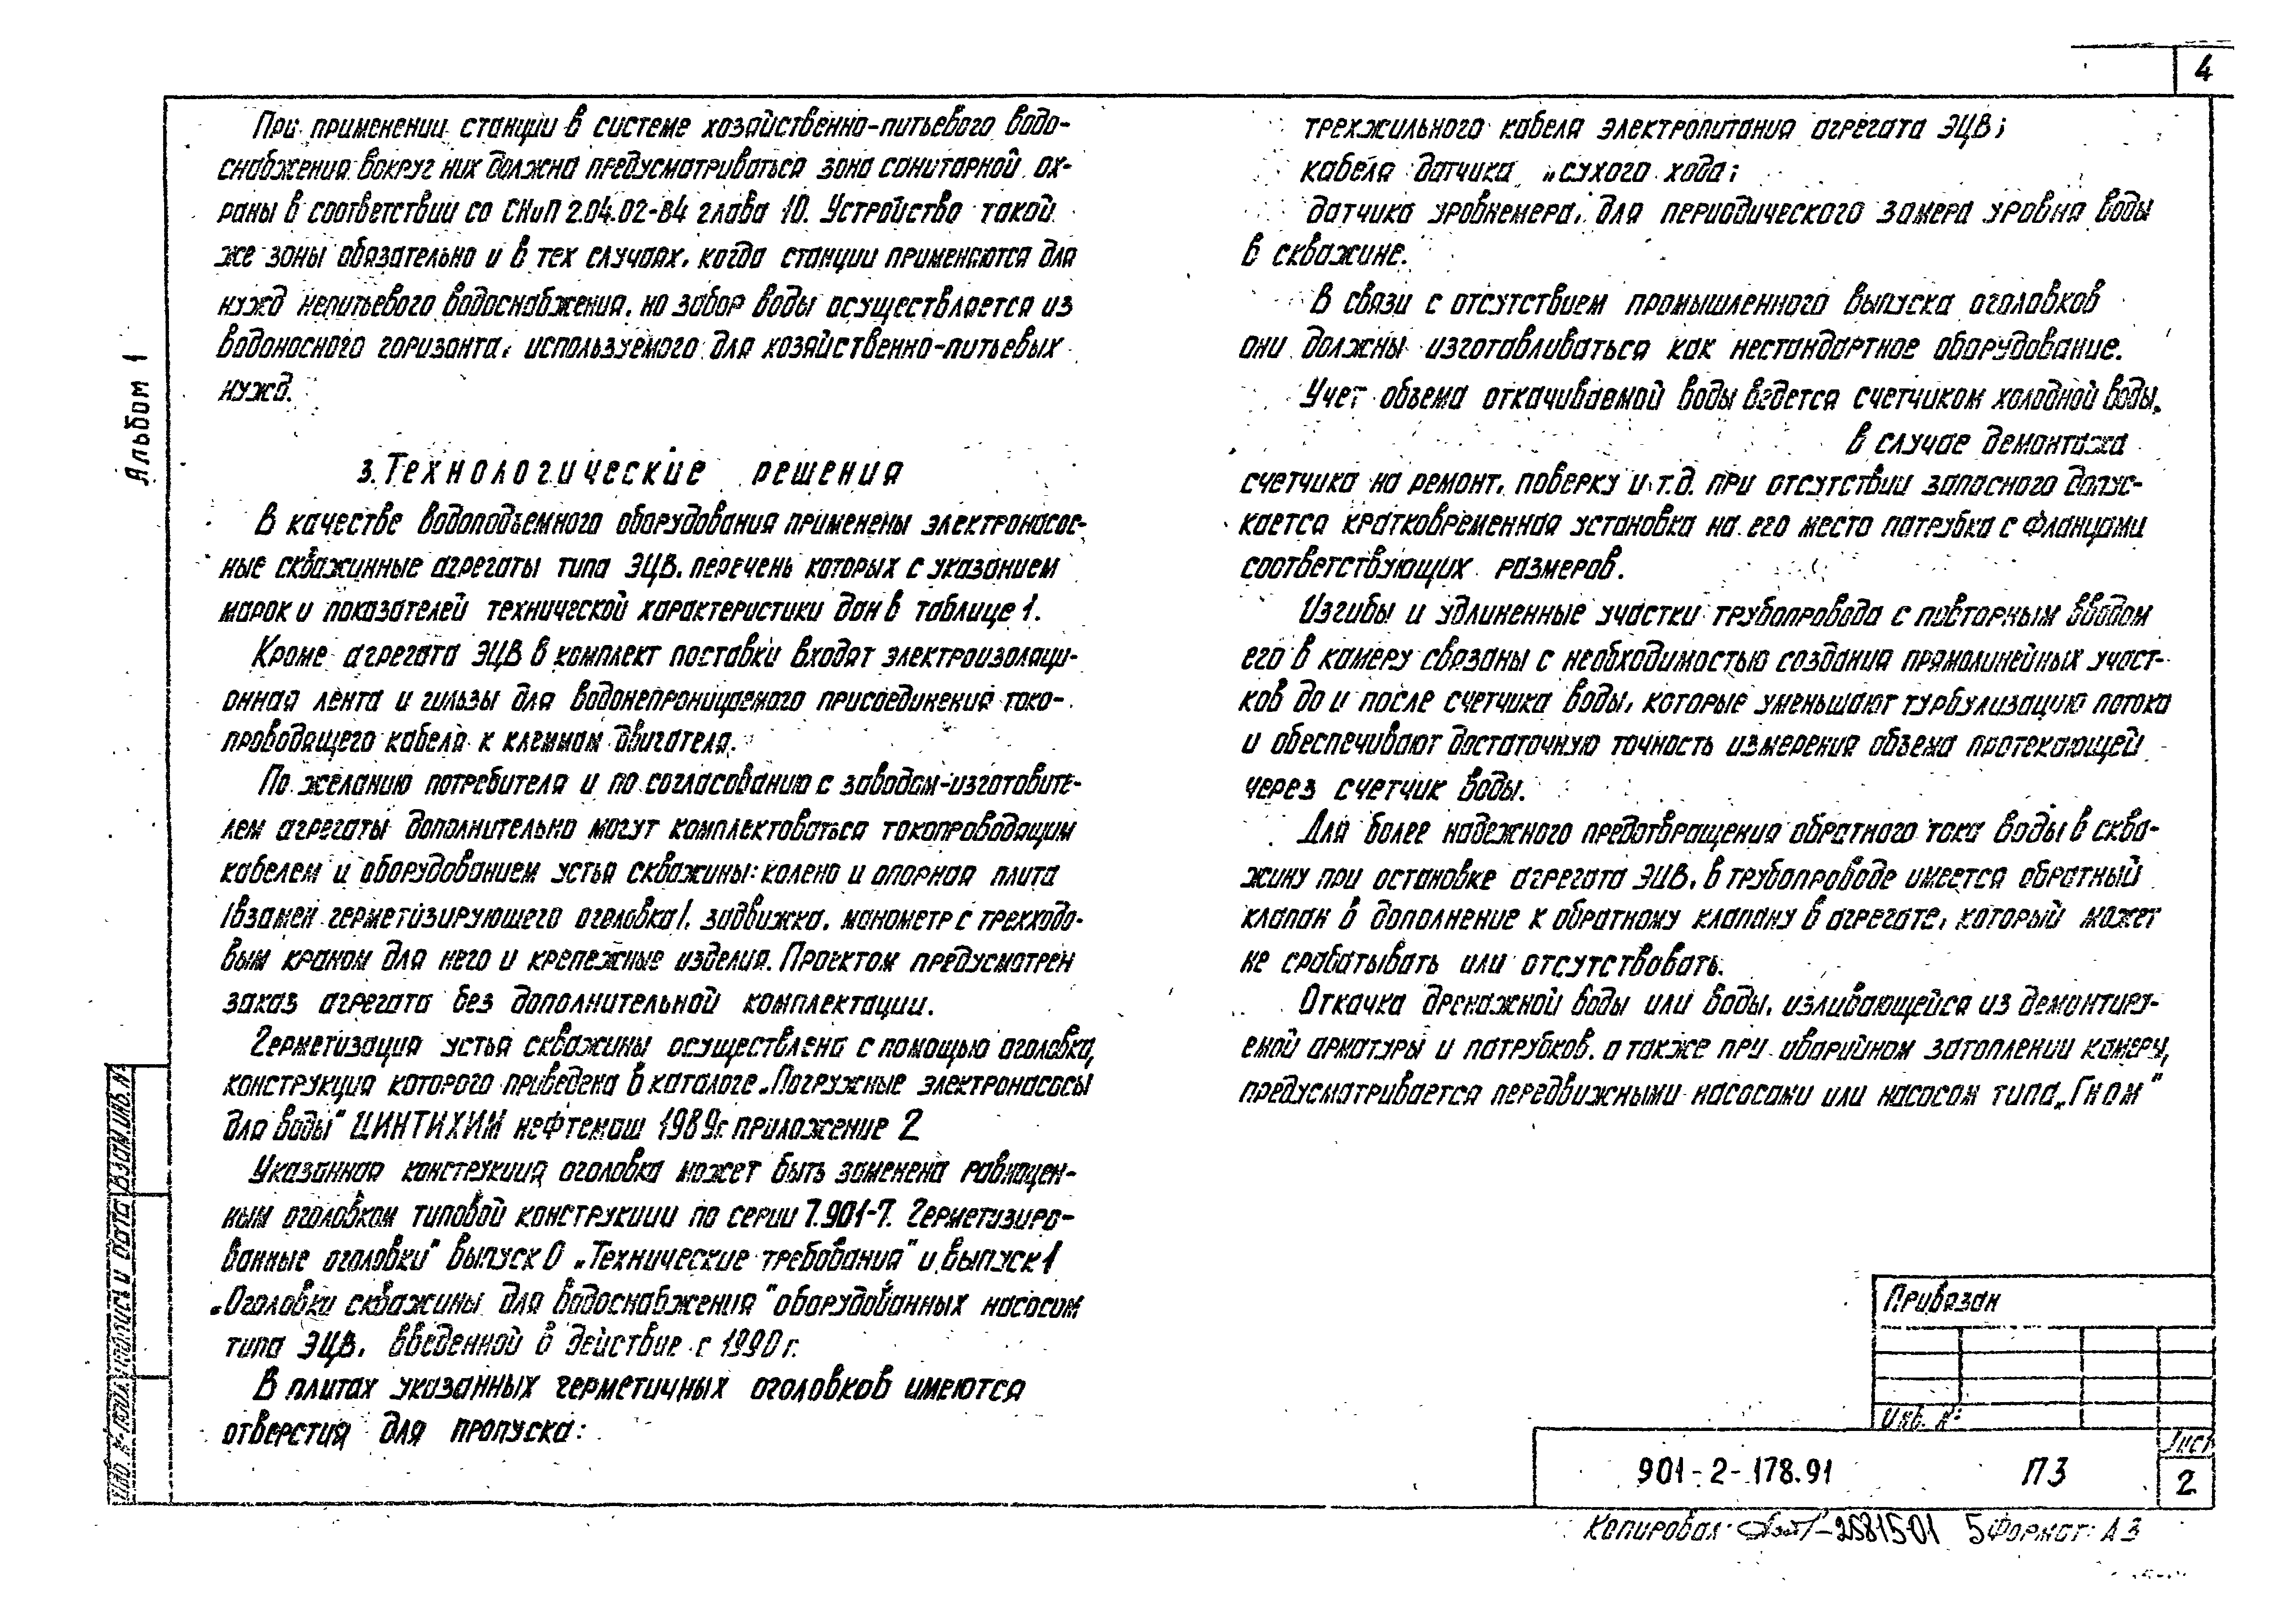 4
Альбом 1
При применении станции в системе хозяйственно-питьевого водо-
снабжения вокруг них должна предусматриваться зона санитарной ох-
раны в соответствии со СНиП 2.04.02-84 глава 10. Устройство такой
же зоны обязательно и в тех случаях, когда станции применяются для
нужд непитьевого водоснабжения, но забор воды осуществляется из
водоносного горизонта, используемого для хозяйственно-питьевых
нужд.
3. Технологические решения
В качестве водоподъемного оборудования применены электронасос-
ные скважинные агрегаты типа ЭЦВ, перечень которых с указанием
марок и показателей технической характеристики дан в таблице 1.
Кроме агрегата ЭЦВ в комплект поставки входят электроизоляци-
онная лента и гильзы для водонепроницаемого присоединения токо-
проводящего кабеля к клеммам двигателя.
По желанию потребителя и по согласованию с заводом-изготовите-
лем агрегаты дополнительно могут комплектоваться токопроводящим
кабелем и оборудованием устья скважины: колено и опорная плита
/взамен герметизирующего оголовка/, задвижка, манометр с трехходо-
вым краном для него и крепежные изделия. Проектом предусмотрен
заказ агрегата без дополнительной комплектации.
Герметизация устья скважины осуществлена с помощью оголовка,
конструкция которого приведена в каталоге „Погружные электронасосы
для воды" ЦИНТИХИМ нефтемаш 1989г. приложение 2
Указанная конструкция оголовка может быть заменена равноцен-
ным оголовком типовой конструкции по серии 7.901-7. Герметизиро-
ванные оголовки" Выпуск 0 „Технические требования" и выпуск 1
„Оголовки скважины для водоснабжения "оборудованных насосом
типа ЭЦВ, введенной в действие с 1990 г.
В плитах указанных герметичных оголовков имеются
отверстия для пропуска:
трехжильного кабеля электропитания агрегата ЭЦВ;
кабеля датчика „сухого хода;
датчика уровнемера, для периодического замера уровня воды
в скважине.
В связи с отсутствием промышленного выпуска оголовков
они должны изготавливаться как нестандартное оборудование.
Учет объема откачиваемой воды ведется счетчиком холодной воды.
В случае демонтажа
счетчика на ремонт, поверку и т.д. при отсутствии запасного допус-
кается кратковременная установка на его место патрубка с фланцами
соответствующих размеров.
Изгибы и удлиненные участки трубопровода с повторным вводом
его в камеру связаны с необходимостью создания прямолинейных участ-
ков до и после счетчика воды, которые уменьшают турбулизацию потока
и обеспечивают достаточную точность измерения объема протекающей
через счетчик воды.
Для более надежного предотвращения обратного тока воды в сква-
жину при остановке агрегата ЭЦВ, в трубопроводе имеется обратный
клапан в дополнение к обратному клапану в агрегате, который может
не срабатывать или отсутствовать.
Откачка дренажной воды или воды, изливающейся из демонтиру-
емой арматуры и патрубков, а также при аварийном затоплении камеры,
предусматривается передвижными насосами или насосом типа „Гном"
Привязан
Инв. №
901-2-178.91 ПЗ
Лист
2
Взам.инв.№
Подпись и дата
Инв. № подл.
Копировал: 25815-01 5 Формат: А3